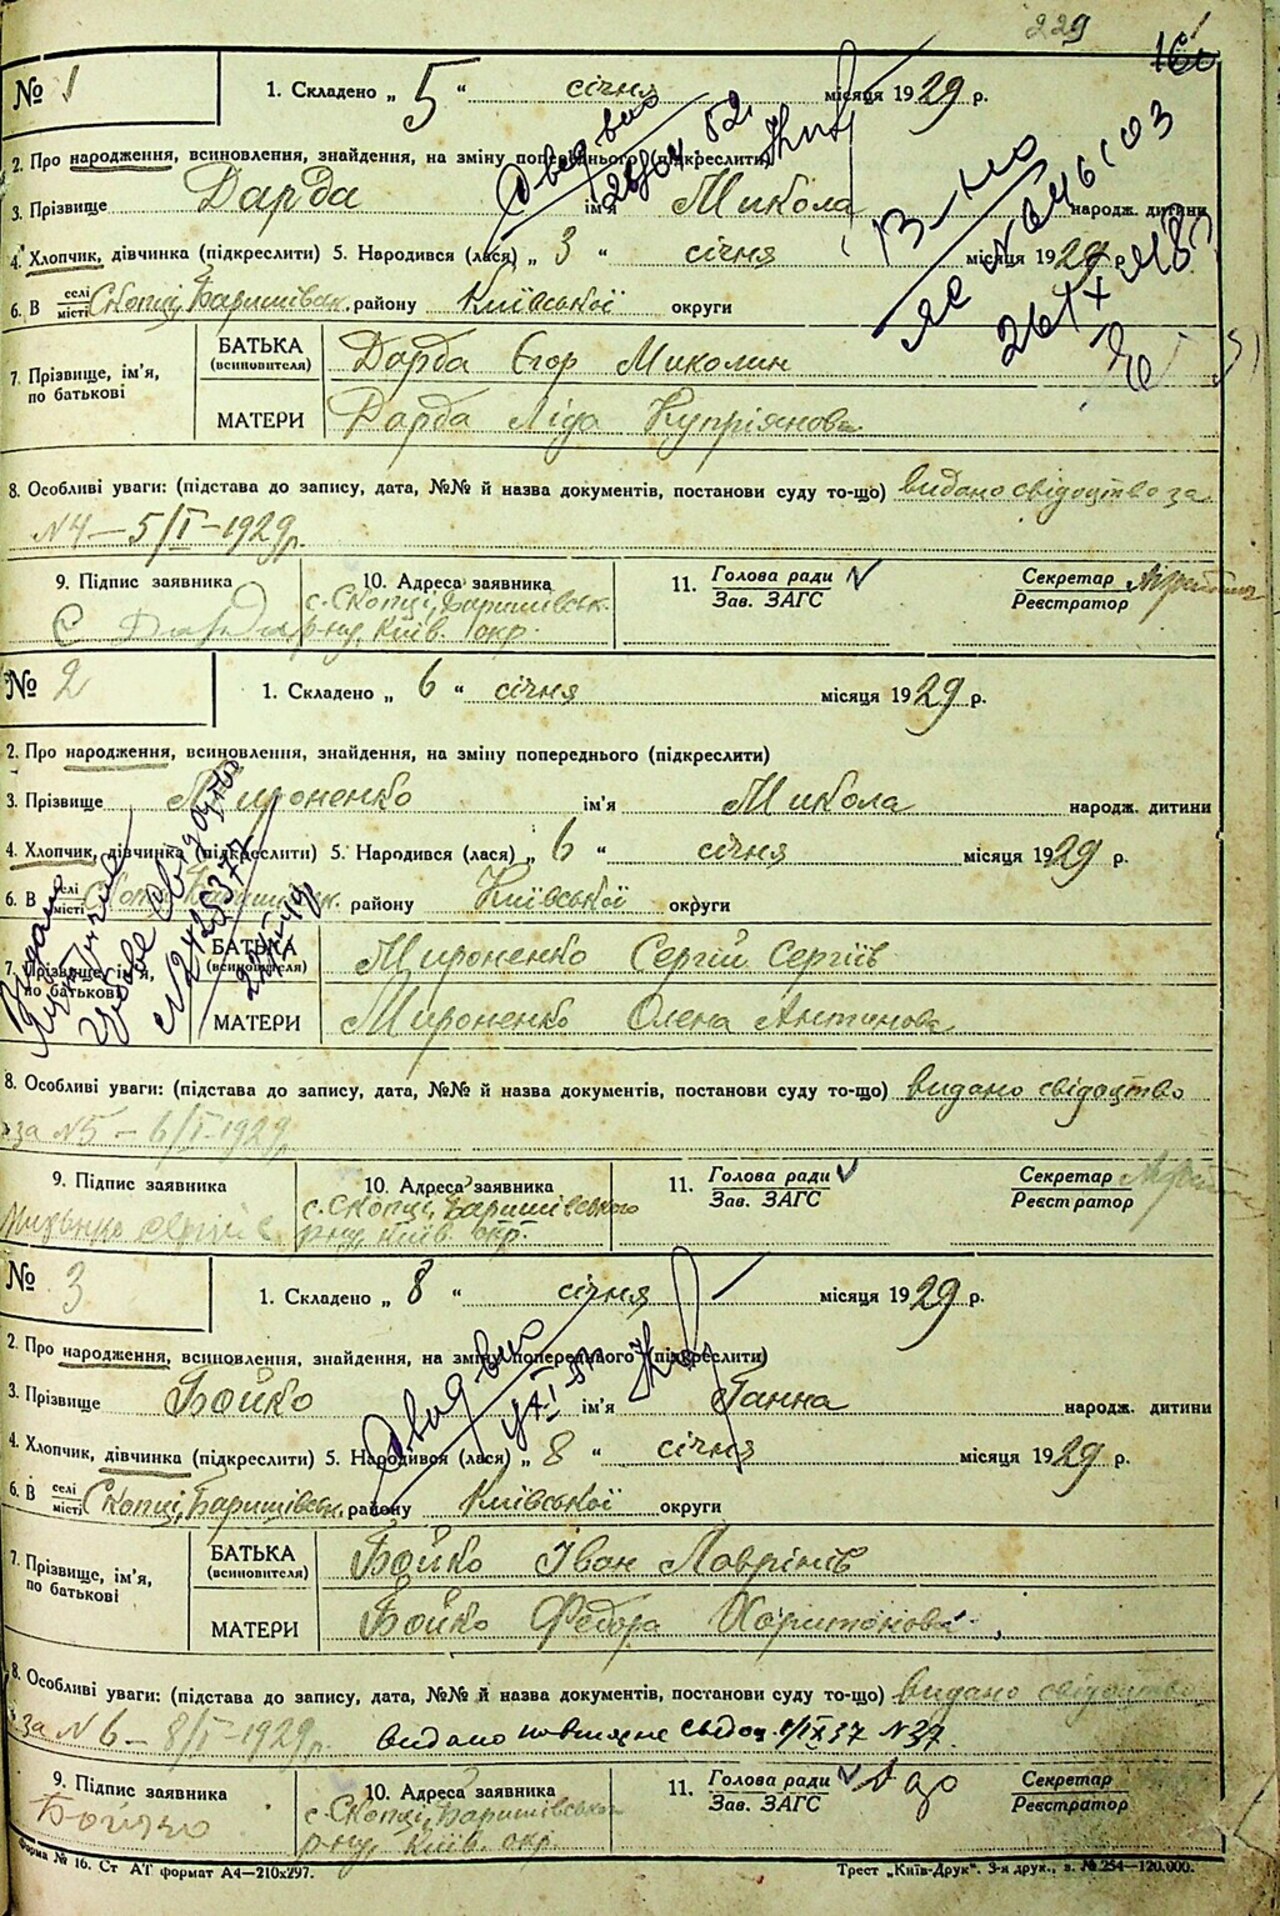 229
№ 1
1. Складено „ 5 “ січня місяця 1929 р.
2. Про народження, всиновлення, знайдення, на зміну попереднього (підкреслити)
3. Прізвище Дарда ім'я Микола народж. дитини
4. Хлопчик, дівчинка (підкреслити) 5. Народився (лася) „ 3 “ січня місяця 1929 р.
6. В селі місті Скопці, Баришівськ. району Київської округи
7. Прізвище, ім'я, по батькові
БАТЬКА (всиновителя) Дарда Єгор Миколин
МАТЕРИ Дарда Ліда Купріянова
8. Особливі уваги: (підстава до запису, дата, №№ й назва документів, постанови суду то-що) видано свідоцтво за
N4 — 5/I – 1929 р.
9. Підпис заявника Є Дарда
10. Адреса заявника с. Скопці, Баришівськ. р-ну, Київ. окр.
11. Голова ради Зав. ЗАГС
Секретар Реєстратор
№ 2
1. Складено „ 6 “ січня місяця 1929 р.
2. Про народження, всиновлення, знайдення, на зміну попереднього (підкреслити)
3. Прізвище Мироненко ім'я Микола народж. дитини
4. Хлопчик, дівчинка (підкреслити) 5. Народився (лася) „ 6 “ січня місяця 1929 р.
6. В селі місті Скопці Баришівськ. району Київської округи
7. Прізвище, ім'я, по батькові
БАТЬКА (всиновителя) Мироненко Сергій Сергіїв
МАТЕРИ Мироненко Олена Антонова
8. Особливі уваги: (підстава до запису, дата, №№ й назва документів, постанови суду то-що) видано свідоцтво
за N5 – 6/I – 1929 р.
9. Підпис заявника
10. Адреса заявника с. Скопці, Баришівського р-ну, Київ. окр.
11. Голова ради Зав. ЗАГС
Секретар Реєстратор
№ 3
1. Складено „ 8 “ січня місяця 1929 р.
2. Про народження, всиновлення, знайдення, на зміну попереднього (підкреслити)
3. Прізвище Бойко ім'я Ганна народж. дитини
4. Хлопчик, дівчинка (підкреслити) 5. Народився (лася) „ 8 “ січня місяця 1929 р.
6. В селі місті Скопці, Баришівськ. району Київської округи
7. Прізвище, ім'я, по батькові
БАТЬКА (всиновителя) Бойко Іван Лаврінів
МАТЕРИ Бойко Федора Харитонова
8. Особливі уваги: (підстава до запису, дата, №№ й назва документів, постанови суду то-що) видано свідоцтво
за N 6 – 8/I – 1929 р. видано повторне N 37.
9. Підпис заявника Бойко
10. Адреса заявника с. Скопці, Баришівськ р-ну, Київ. окр.
11. Голова ради Зав. ЗАГС
Секретар Реєстратор
Форма № 16. Ст АТ формат А4—210х297.
Трест „Київ-Друк“. 3-я друк., з. № 254—120.000.